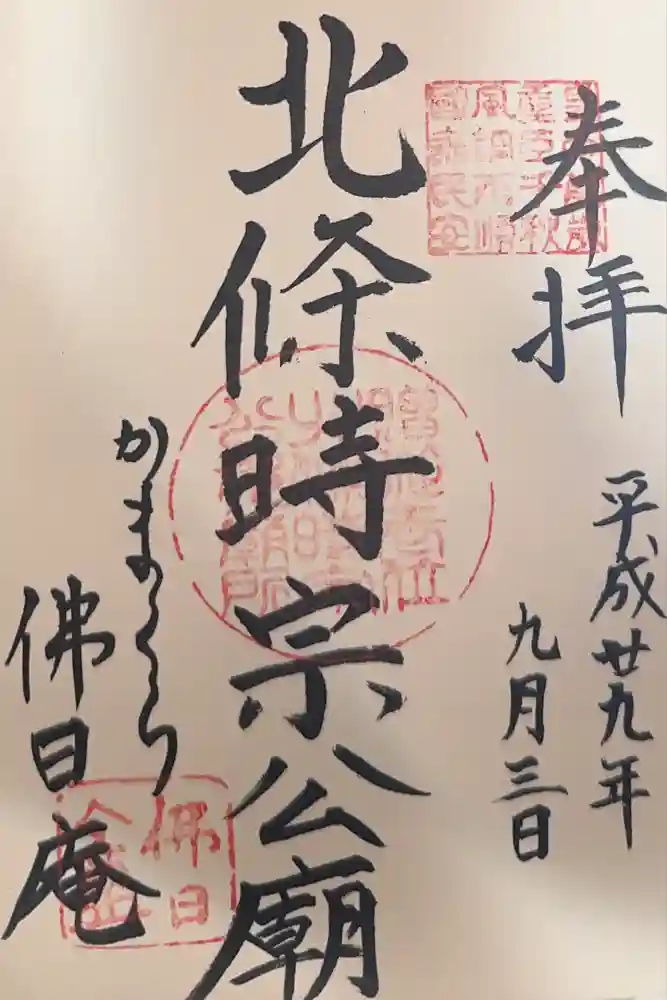 奉拝
平成廿九年
九月三日
北條時宗公廟
かまくら
佛日庵
佛日